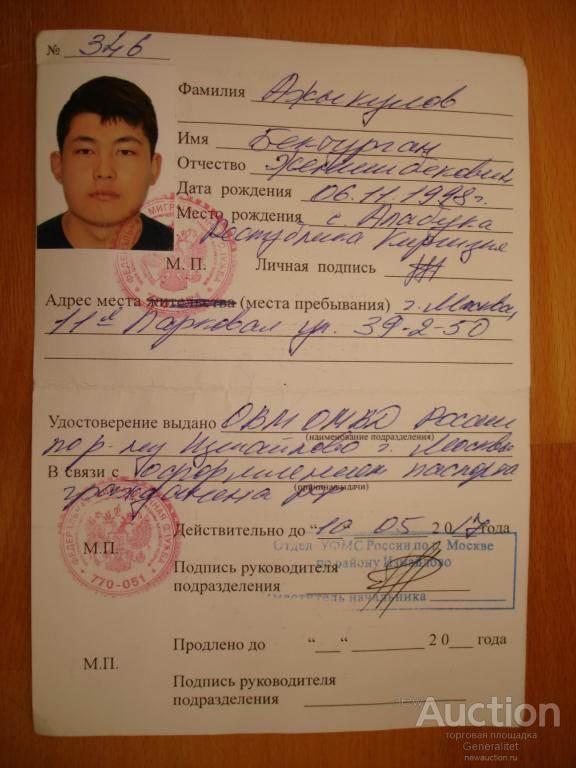 № 346
Фамилия Ажыкулов
Имя Бекчурган
Отчество Женишбекович
Дата рождения 06.11.1998г.
Место рождения с Алабука
Республика Киргизия
М. П. Личная подпись
Адрес места жительства (места пребывания) г. Москва,
11я Парковая ул. 39-2-50
Удостоверение выдано ОВМ ОМВД России
(наименование подразделения)
по р-ну Измайлово г. Москвы
В связи с оформлением паспорта
(причина выдачи)
гражданина РФ
Действительно до “10 05 2017 года
М.П.
Отдел УФМС России по г. Москве
по району Измайлово
Подпись руководителя
подразделения
Заместитель начальника
770-051
Продлено до “ “ 20 года
М.П.
Подпись руководителя
подразделения
newauction.ru
Auction
торговая площадка
Generalitet
newauction.ru